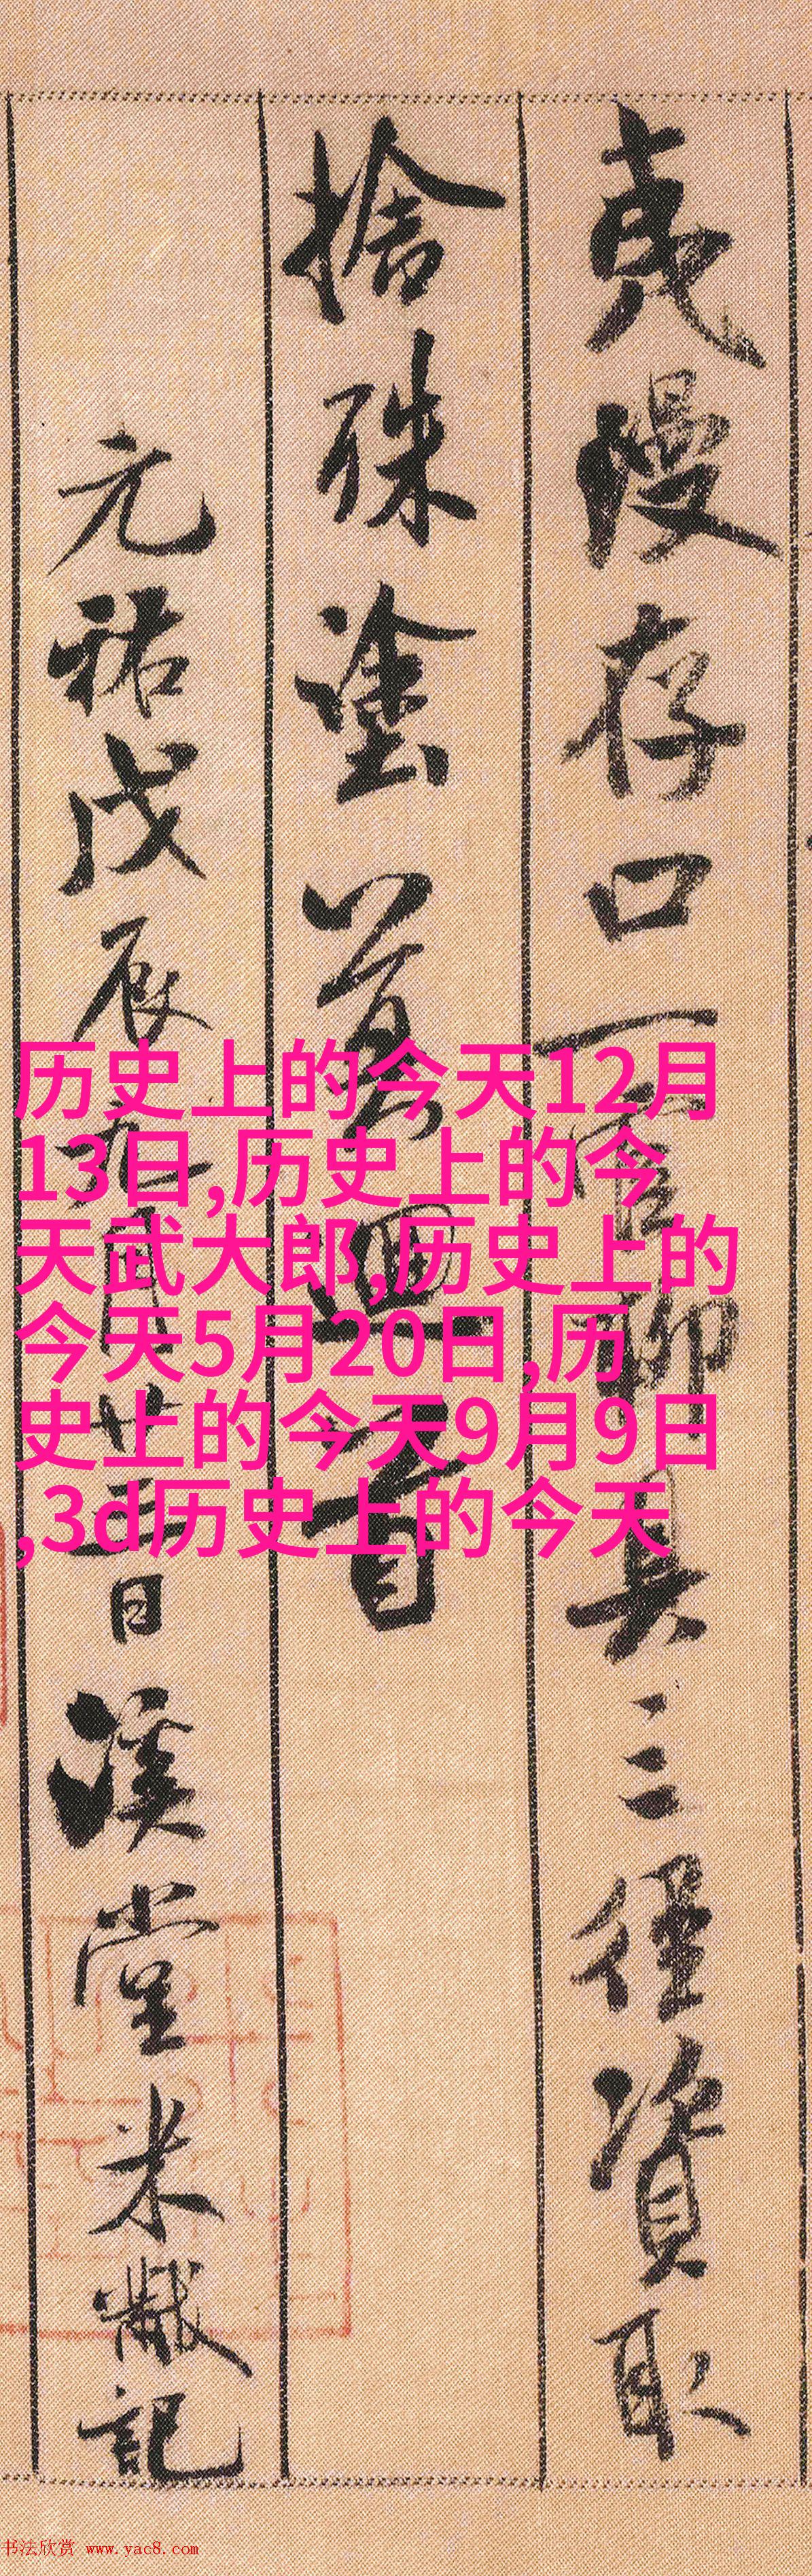 夷漫存口一官聊具三徑資取
捨殊塗莫迴首
元祐戊辰九月廿三日溪堂米黻記
历史上的今天12月
13日,历史上的今
天武大郎,历史上的
今天5月20日,历
史上的今天9月9日
,3d历史上的今天
书法欣赏 www.yac8.com